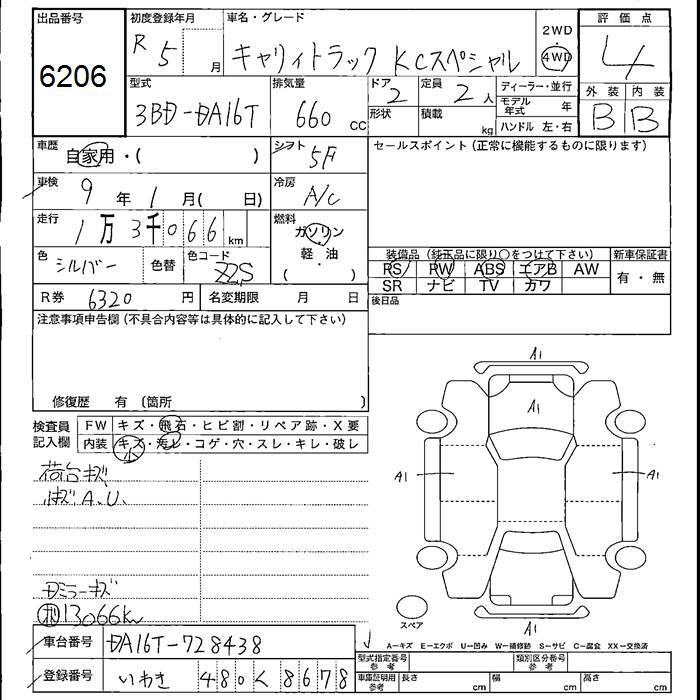 出品番号 6206
初度登録年月 R5 月
車名・グレード キャリィトラック KCスペシャル
2WD
4WD
評価点 4
型式 3BD-DA16T
排気量 660 cc
ドア 2
定員 2 人
形状
積載 kg
ディーラー・並行
モデル年式 年
ハンドル 左・右
外装 内装
B B
車歴 自家用・( )
シフト 5F
セールスポイント(正常に機能するものに限ります)
車検 9年 1月( 日)
冷房 A/C
走行 1万3千066km
燃料 ガソリン・軽油・( )
色 シルバー 色替 色コード Z2S
装備品(純正品に限り○をつけて下さい)
新車保証書
PS PW ABS エアB AW
有・無
SR ナビ TV カワ
R券 6320 円 名変期限 月 日
後日品
注意事項申告欄(不具合内容等は具体的に記入して下さい)
修復歴 有(箇所 )
検査員記入欄
FW キズ・飛石・ヒビ割・リペア跡・X要
内装 キズ・汚レ・コゲ・穴・スレ・キレ・破レ
小
荷台キズ
A.U.
ミラーキズ
13066km
A1
A1
A1
A1
A1
スペア
A=キズ E=エクボ U=凹み W=補修跡 S=サビ C=腐食 XX=交換済
車台番号 DA16T-728438
登録番号 いわき 480 く 8678
型式指定番号 参考
類別区分番号 参考
車庫証明用 参考 長さ cm 幅 cm 高さ cm